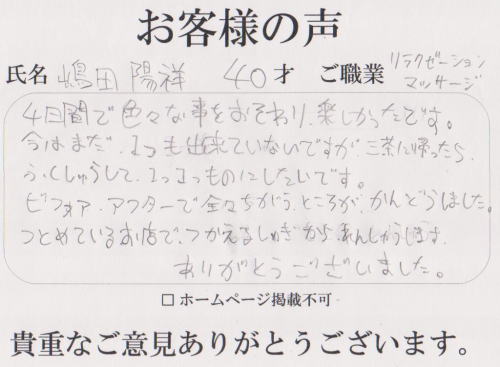 お客様の声
氏名 嶋田 陽祥 40才 ご職業 リラクゼーション マッサージ
4日間で色々な事をおそわり、楽しかったです。
今はまだ、1つも出来ていないですが、三茶に帰ったら、
ふくしゅうして、1つ1つものにしたいです。
ビフォア・アフターで全々ちがう、ところが、かんどうしました。
つとめているお店で、つかえるしゅぎから、れんしゅうします。
ありがとうございました。
□ ホームページ掲載不可
貴重なご意見ありがとうございます。